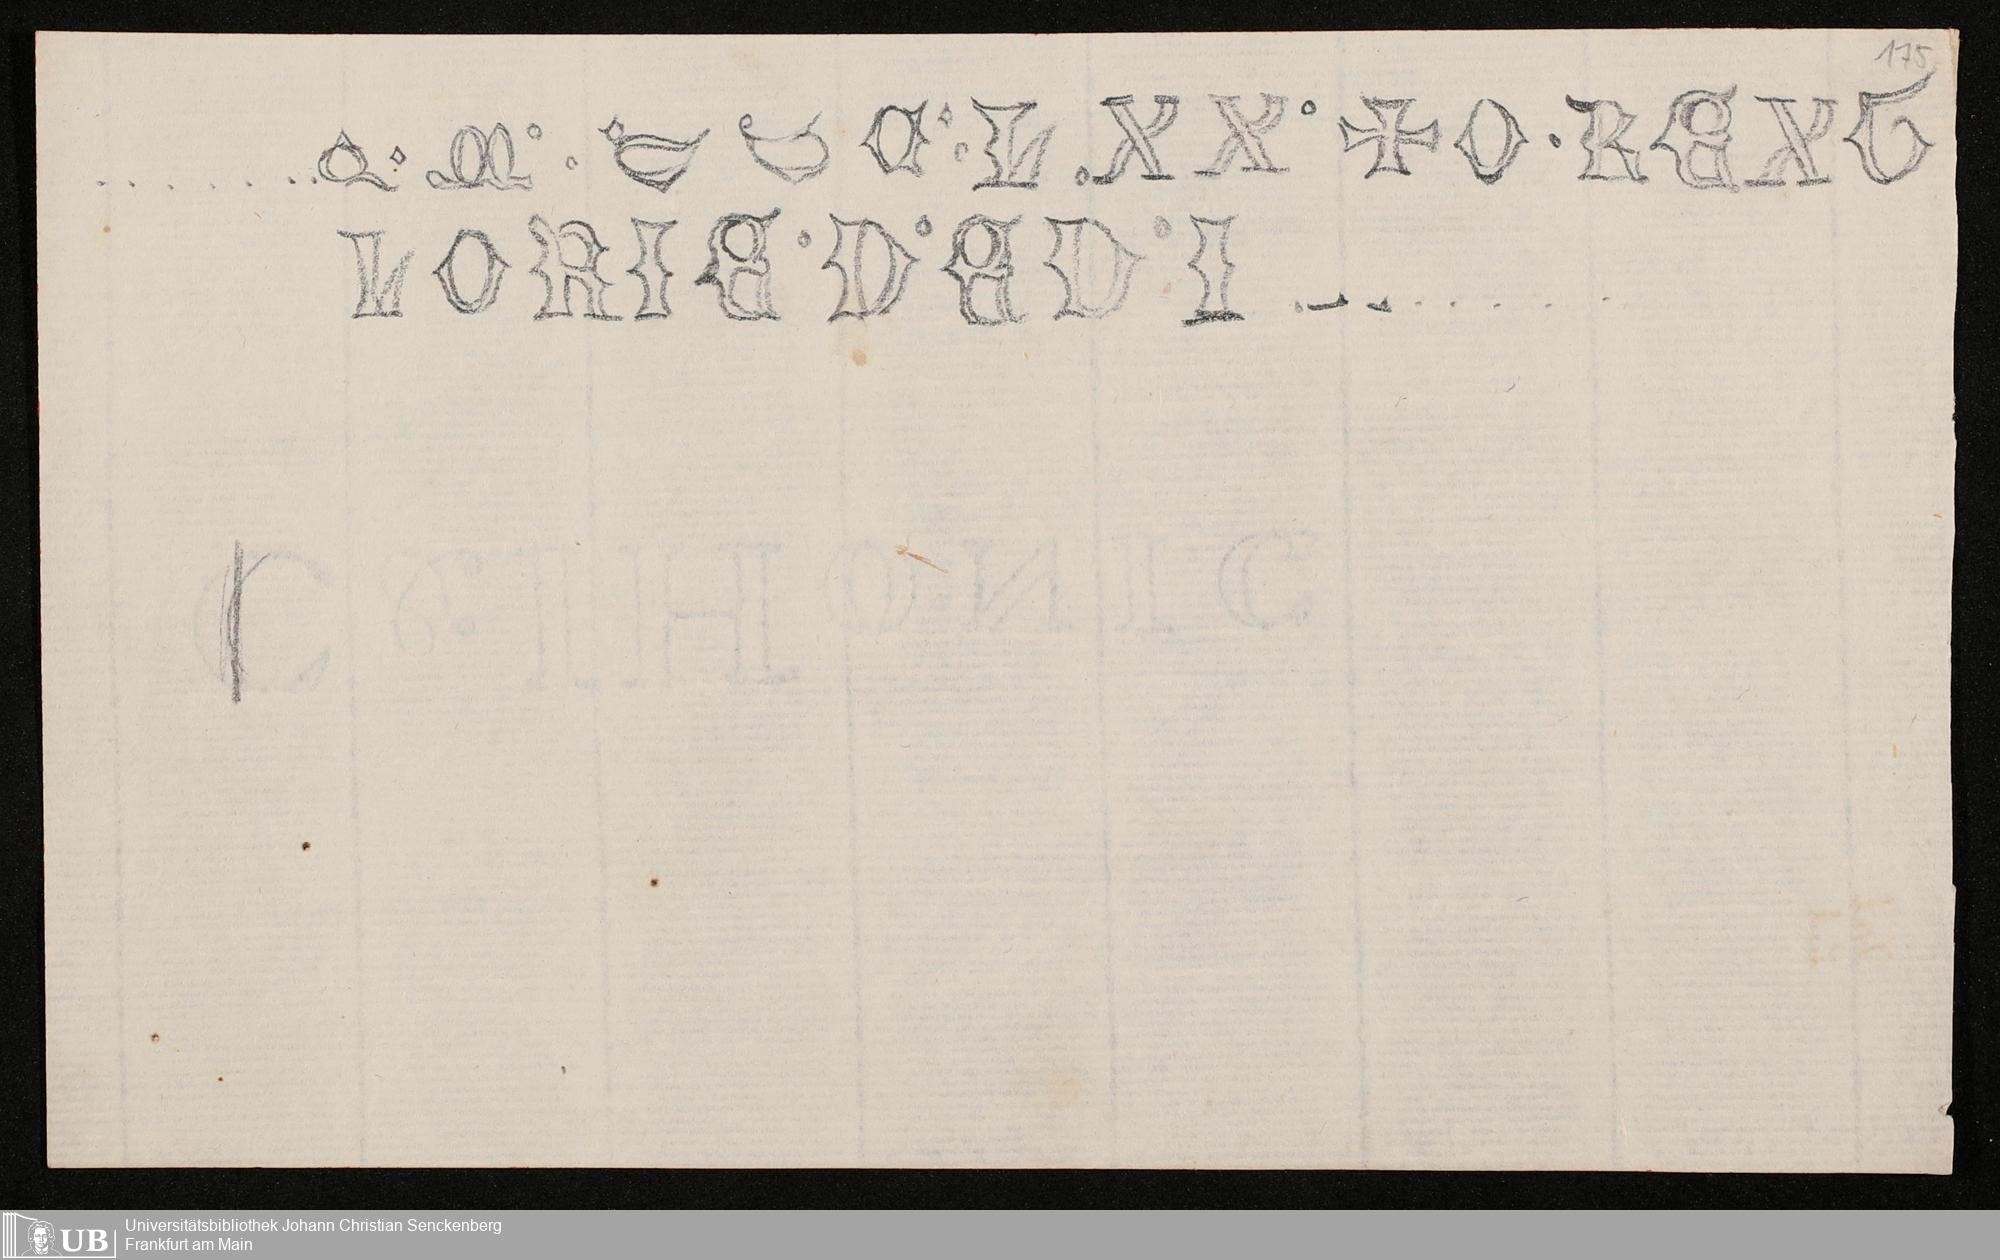 175
A · M° · C C C · L . X X ° ✠ O · R E X G
L O R I E ° D ° E D ° I
Universitätsbibliothek Johann Christian Senckenberg
UB
Frankfurt am Main